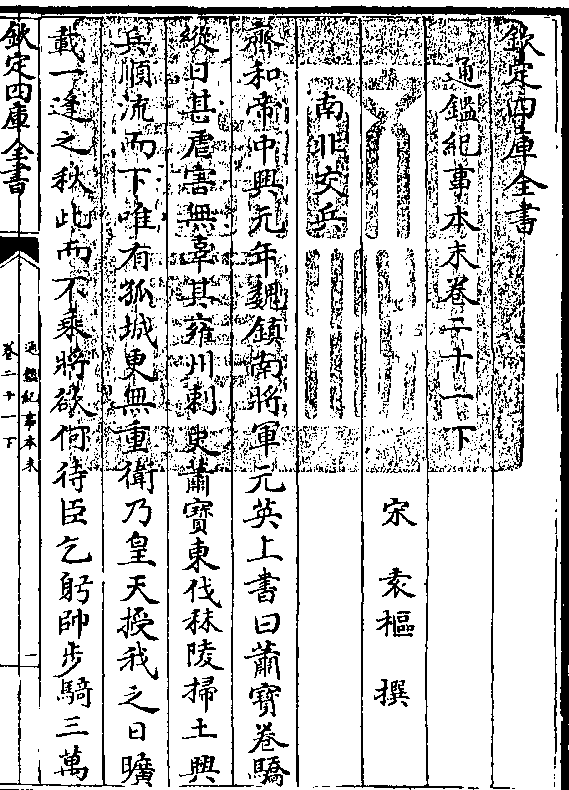 欽定四庫全書
通鑑紀事本末卷二十一下
宋 袁樞 撰
南北交兵
齊和帝中興元年魏鎮南將軍元英上書曰蕭寶卷驕
縱日甚虐害無辜其雍州刺史蕭寶東伐秣陵掃土興
兵順流而下唯有孤城更無重衛乃皇天授我之日曠
載一逢之秋此而不乘將欲何待臣乞躬帥步騎三萬
欽定四庫全書
通鑑紀事本末
卷二十一下
一